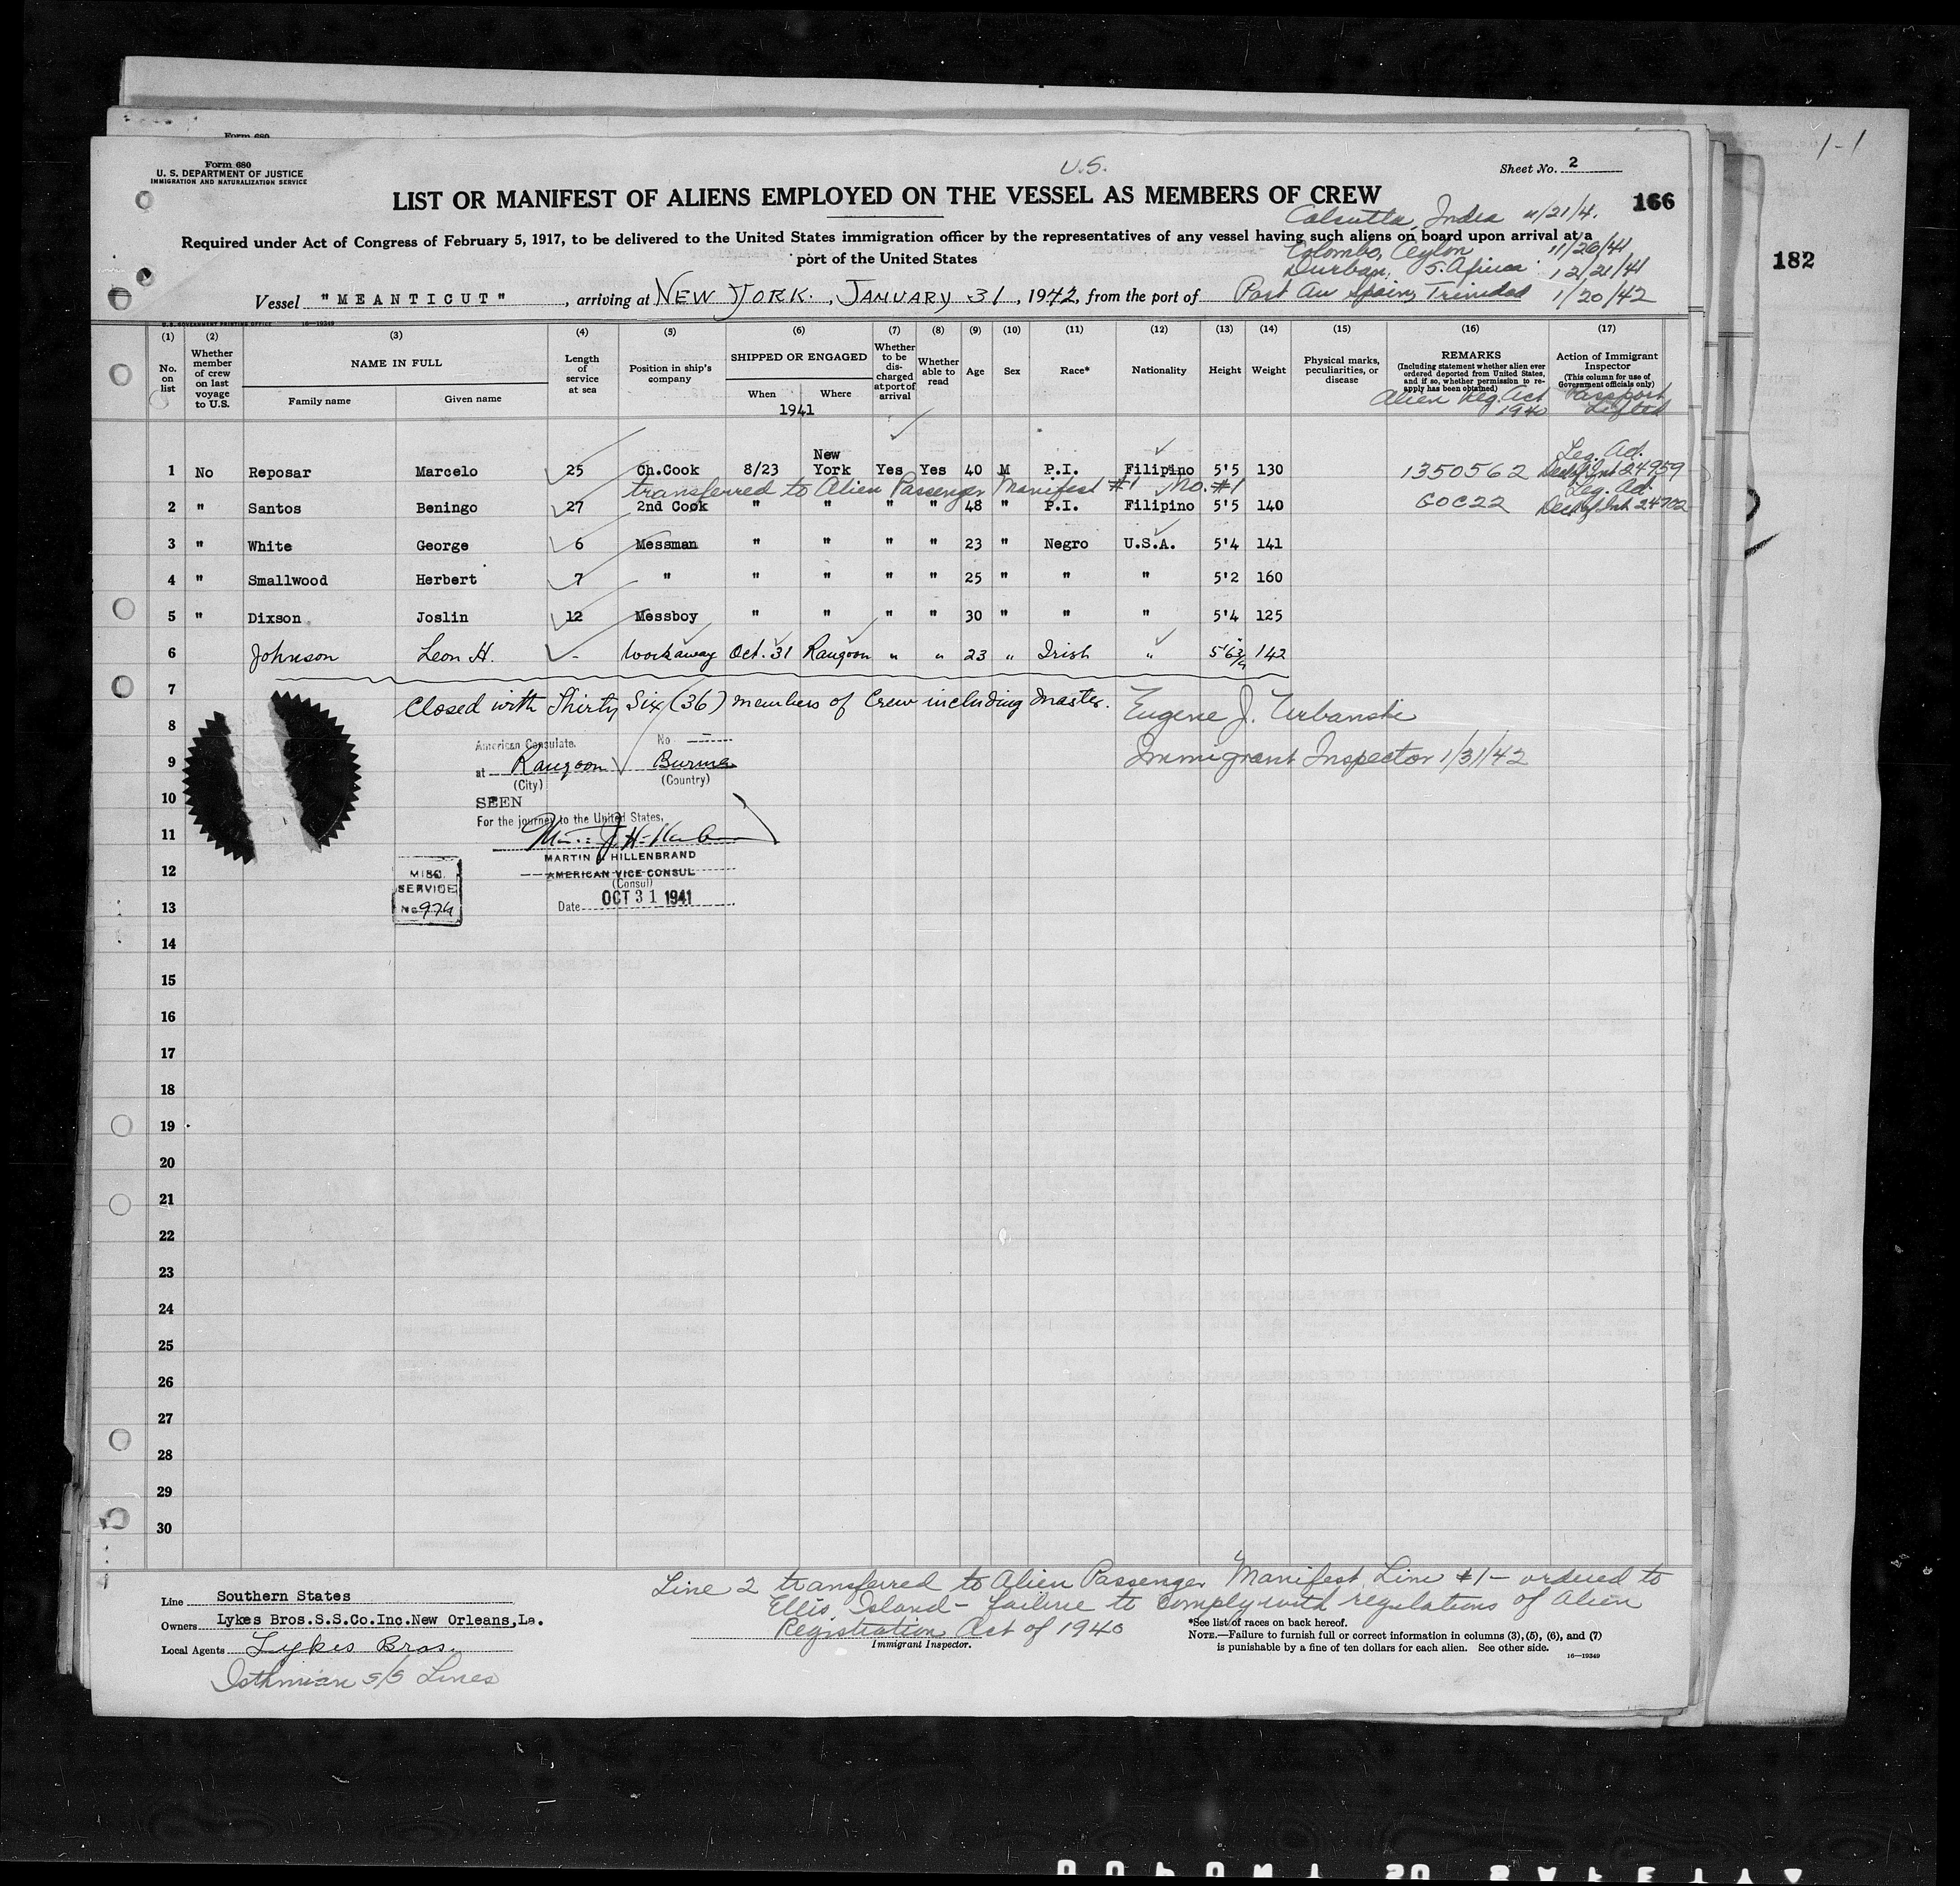 1-1
182
Form 680
Form 680
U. S. DEPARTMENT OF JUSTICE
IMMIGRATION AND NATURALIZATION SERVICE
U.S.
Sheet No. 2
LIST OR MANIFEST OF ALIENS EMPLOYED ON THE VESSEL AS MEMBERS OF CREW
166
Calcutta, India 11/21/4.
Required under Act of Congress of February 5, 1917, to be delivered to the United States immigration officer by the representatives of any vessel having such aliens on board upon arrival at a
port of the United States
Colombo, Ceylon 11/26/41
Durban, S. Africa 12/21/41
Vessel "MEANTICUT", arriving at NEW YORK, JANUARY 31, 1942, from the port of Port Au Spain, Trinidad 1/20/42
U.S. GOVERNMENT PRINTING OFFICE 16—19349
(1) (2) (3) (4) (5) (6) (7) (8) (9) (10) (11) (12) (13) (14) (15) (16) (17)
No. on list
Whether member of crew on last voyage to U.S.
NAME IN FULL
Family name
Given name
Length of service at sea
Position in ship's company
SHIPPED OR ENGAGED
When
Where
1941
Whether to be discharged at port of arrival
Whether able to read
Age
Sex
Race*
Nationality
Height
Weight
Physical marks, peculiarities, or disease
REMARKS
(Including statement whether alien ever ordered deported from United States, and if so, whether permission to reapply has been obtained)
Alien Reg. Act 1940
Action of Immigrant Inspector
(This column for use of Government officials only)
Passport Lifted
1 No Reposar Marcelo 25 Ch.Cook 8/23 New York Yes Yes 40 M P.I. Filipino 5'5 130 1350562 Leg. Ad. 24959
transferred to Alien Passenger Manifest #1 No. #1
2 " Santos Beningo 27 2nd Cook " " " " 48 " P.I. Filipino 5'5 140 GOC22 Leg. Ad. 24702
3 " White George 6 Messman " " " " 23 " Negro U.S.A. 5'4 141
4 " Smallwood Herbert 7 " " " " " 25 " " " 5'2 160
5 " Dixson Joslin 12 Messboy " " " " 30 " " " 5'4 125
6 Johnson Leon H. - Workaway Oct. 31 Rangoon " " 23 " Irish " 5'6 3/4 142
7
Closed with Thirty Six (36) members of Crew including Master.
Eugene J. Urbanski
8
American Consulate. No —
Immigrant Inspector 1/31/42
9
at Rangoon Burma
(City) (Country)
10
SEEN
For the journey to the United States,
11
MARTIN J HILLENBRAND
12
AMERICAN VICE CONSUL
(Consul)
MISC.
SERVICE
No 974
13
Date OCT 31 1941
14
15
16
17
18
19
20
21
22
23
24
25
26
27
28
29
30
Line Southern States
Owners Lykes Bros.S.S.Co.Inc.New Orleans,La.
Local Agents Lykes Bros.
Isthmian S/S Lines
Line 2 transferred to Alien Passenger Manifest Line #1 — ordered to
Ellis Island — failure to comply with regulations of Alien
Registration Act of 1940
Immigrant Inspector.
*See list of races on back hereof.
NOTE.—Failure to furnish full or correct information in columns (3), (5), (6), and (7)
is punishable by a fine of ten dollars for each alien. See other side.
16—19349